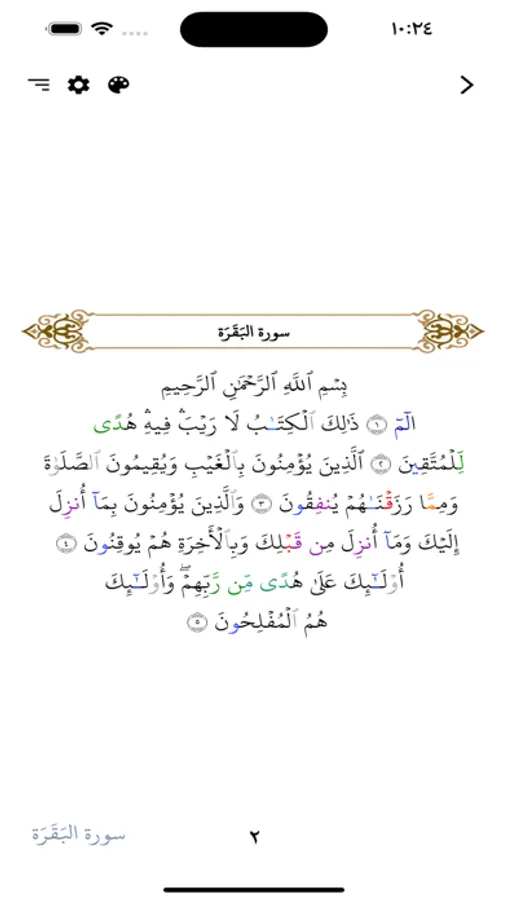 ١٠:٢٤
سورة البَقَرَة
بِسْمِ ٱللَّهِ ٱلرَّحْمَٰنِ ٱلرَّحِيمِ
الٓمٓ ١ ذَٰلِكَ ٱلْكِتَـٰبُ لَا رَيْبَ ۛ فِيهِ ۛ هُدًى
لِّلْمُتَّقِينَ ٢ ٱلَّذِينَ يُؤْمِنُونَ بِٱلْغَيْبِ وَيُقِيمُونَ ٱلصَّلَوٰةَ
وَمِمَّا رَزَقْنَـٰهُمْ يُنفِقُونَ ٣ وَٱلَّذِينَ يُؤْمِنُونَ بِمَآ أُنزِلَ
إِلَيْكَ وَمَآ أُنزِلَ مِن قَبْلِكَ وَبِٱلْأَخِرَةِ هُمْ يُوقِنُونَ ٤
أُو۟لَـٰٓئِكَ عَلَىٰ هُدًى مِّن رَّبِّهِمْ ۖ وَأُو۟لَـٰٓئِكَ
هُمُ ٱلْمُفْلِحُونَ ٥
سورة البَقَرَة
٢